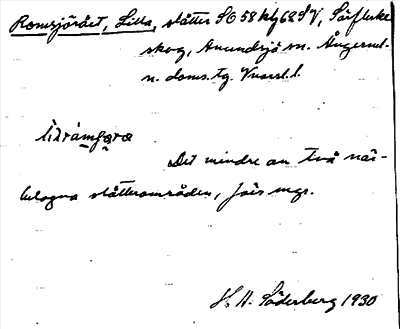 Romsjöråët, Lilla, slåtter SO 58 kbg 62 SV, Sörflärke
skog, Anundsjö sn. Ångerml-
n. doms. tg. Vnorrl. l.
Det mindre av två när-
belägna slåtterområden, före mgs.
H. H. Söderberg 1930